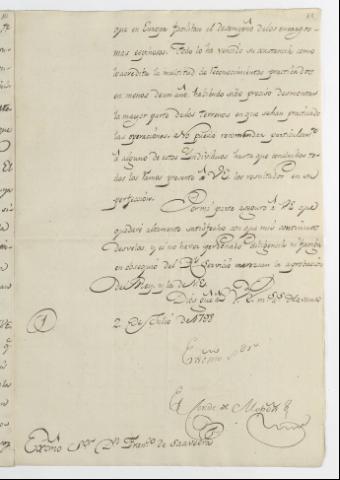 que en Europa facilitan el desempeño de los encargos
mas espinosos. Todo lo ha vencido su constancia como
lo acredita la multitud de reconocimientos practicados
en menos de un año, habiendo sido preciso desmontar
la mayor parte de los terrenos en que se han practicado
las operaciones. No puedo recomendar particularm.te
á alguno de estos Individuos hasta que concluidos to-
dos los ramos presente á V.E. los resultados en su
perfeccion.
Por mi parte aseguro á V.E. que
quedaré altamente satisfecho con que mis continuos
desvelos, y el no haver perdonado diligencia ni fatiga
en obsequio del R.l Servicio merezcan la aprobacion
del Rey, y la de V.E.
Dios gu.e á V.E. m.s a.s Havana
2 de Julio de 1798
Exmo Sor
El Conde de
Exmo Sor Dn Franco de Saavedra